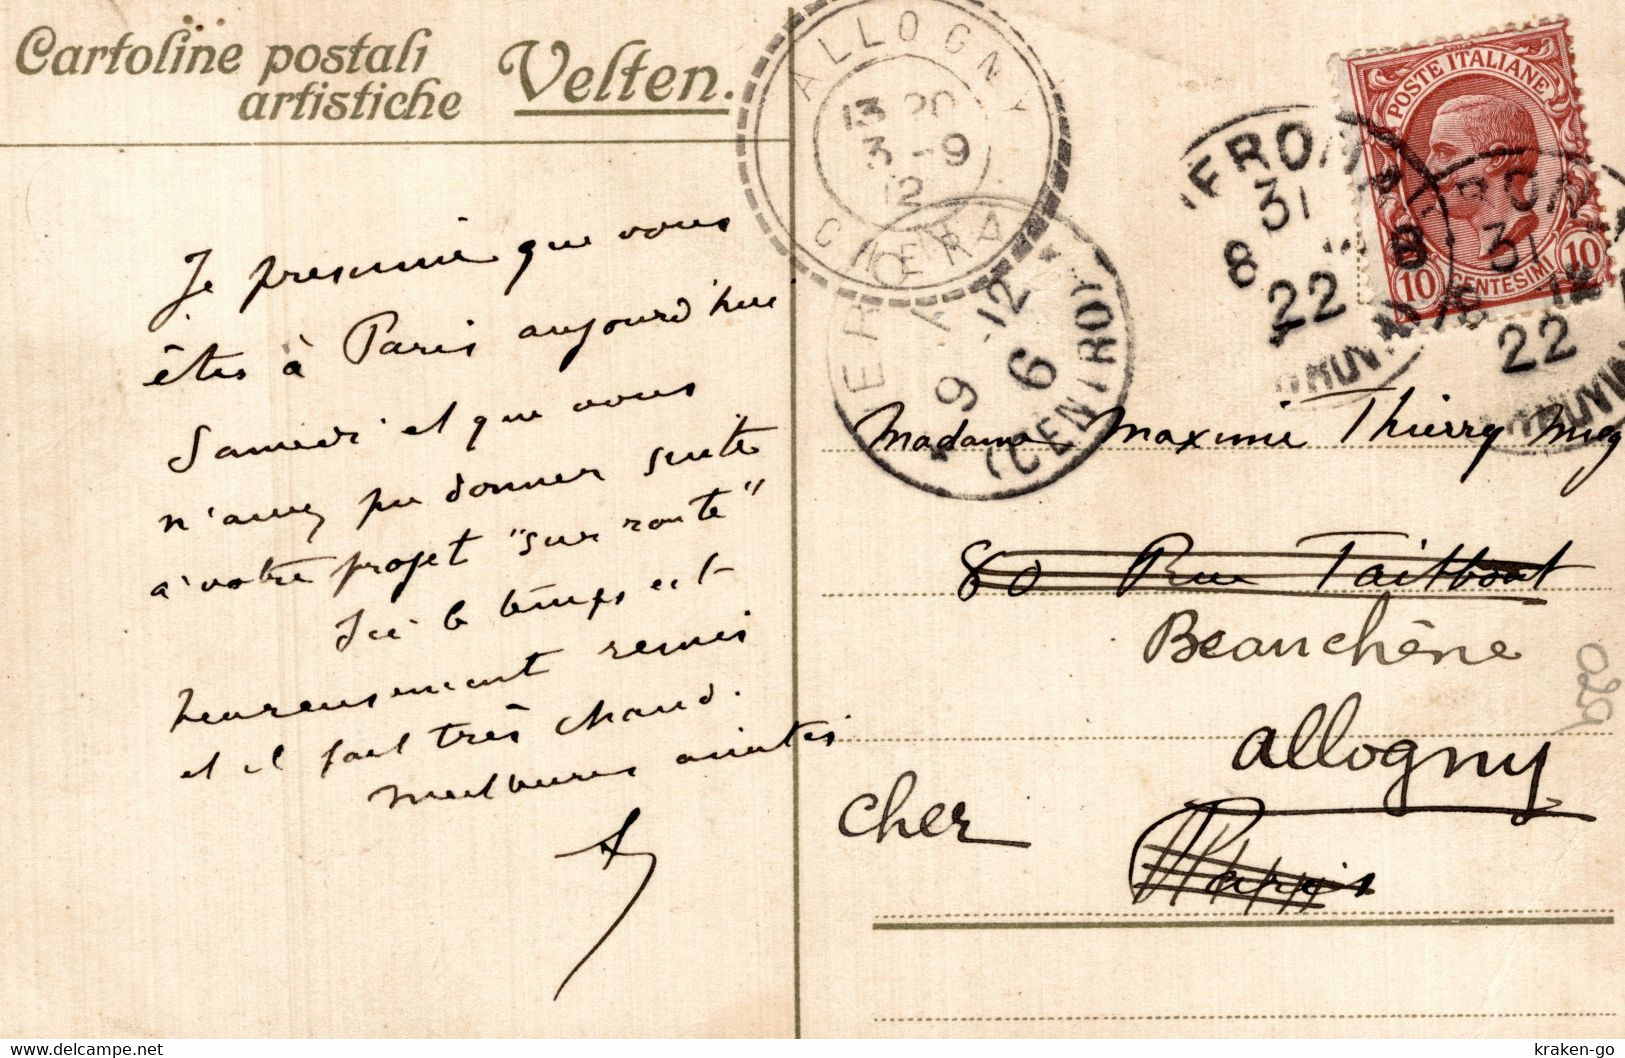 Cartoline postali
artistiche
Velten.
ALLOGNY
13 20
3 - 9
12
CHER
POSTE ITALIANE
10 CENTESIMI 10
31
8
22
31
22
9
6
12
(CENTRO)
Je présume que vous
êtes à Paris aujourd'hui
Samedi et que vous
n'avez pu donner suite
à votre projet "sur route"
Ici le temps est
heureusement remis
et il fait très chaud.
Meilleures amitiés
Madame Maxime Thierry Mieg
80 Rue Taitbout
Beauchêne
Allogny
Cher
Paris
029
kraken-go